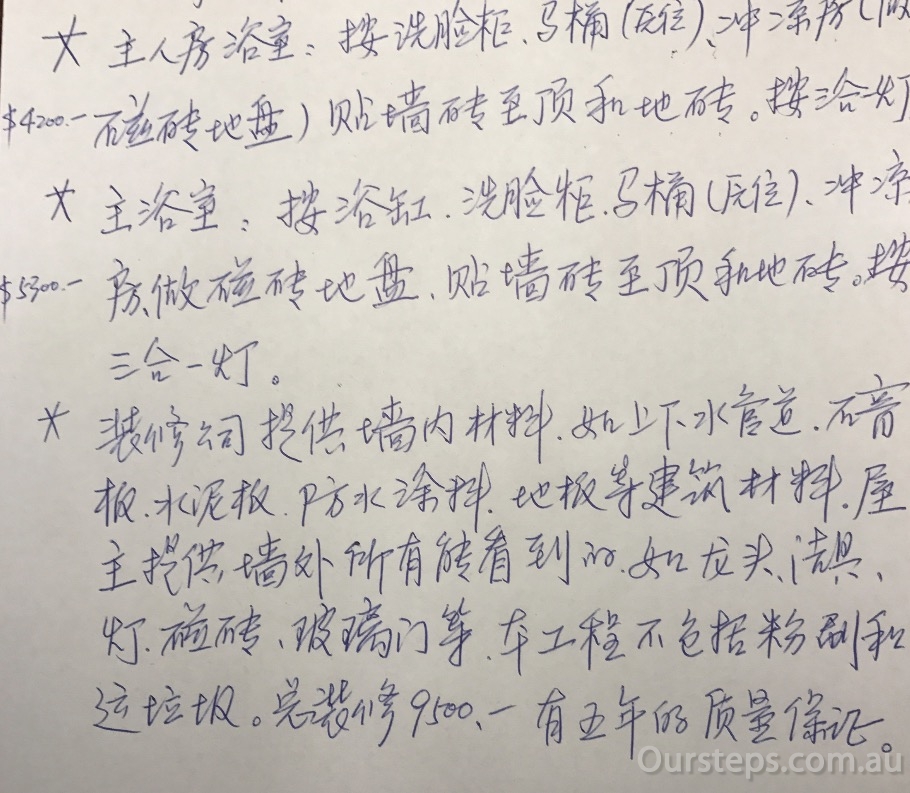 * 主人房浴室：按洗脸柜、马桶(反位)、冲凉房(做
$4200.- 磁砖地盘)贴墙砖至顶和地砖。按三合一灯
* 主浴室：按浴缸、洗脸柜、马桶(反位)、冲凉
$5300.- 房、做磁砖地盘、贴墙砖至顶和地砖。按
三合一灯。
* 装修公司提供墙内材料、如上下水管道、石膏
板、水泥板、防水涂料、地板等建筑材料、屋
主提供墙外所有能看到的、如龙头、洁具、
灯、磁砖、玻璃门等、本工程不包括粉刷和
运垃圾。总装修9500.- 有五年的质量保证。
Oursteps.com.au